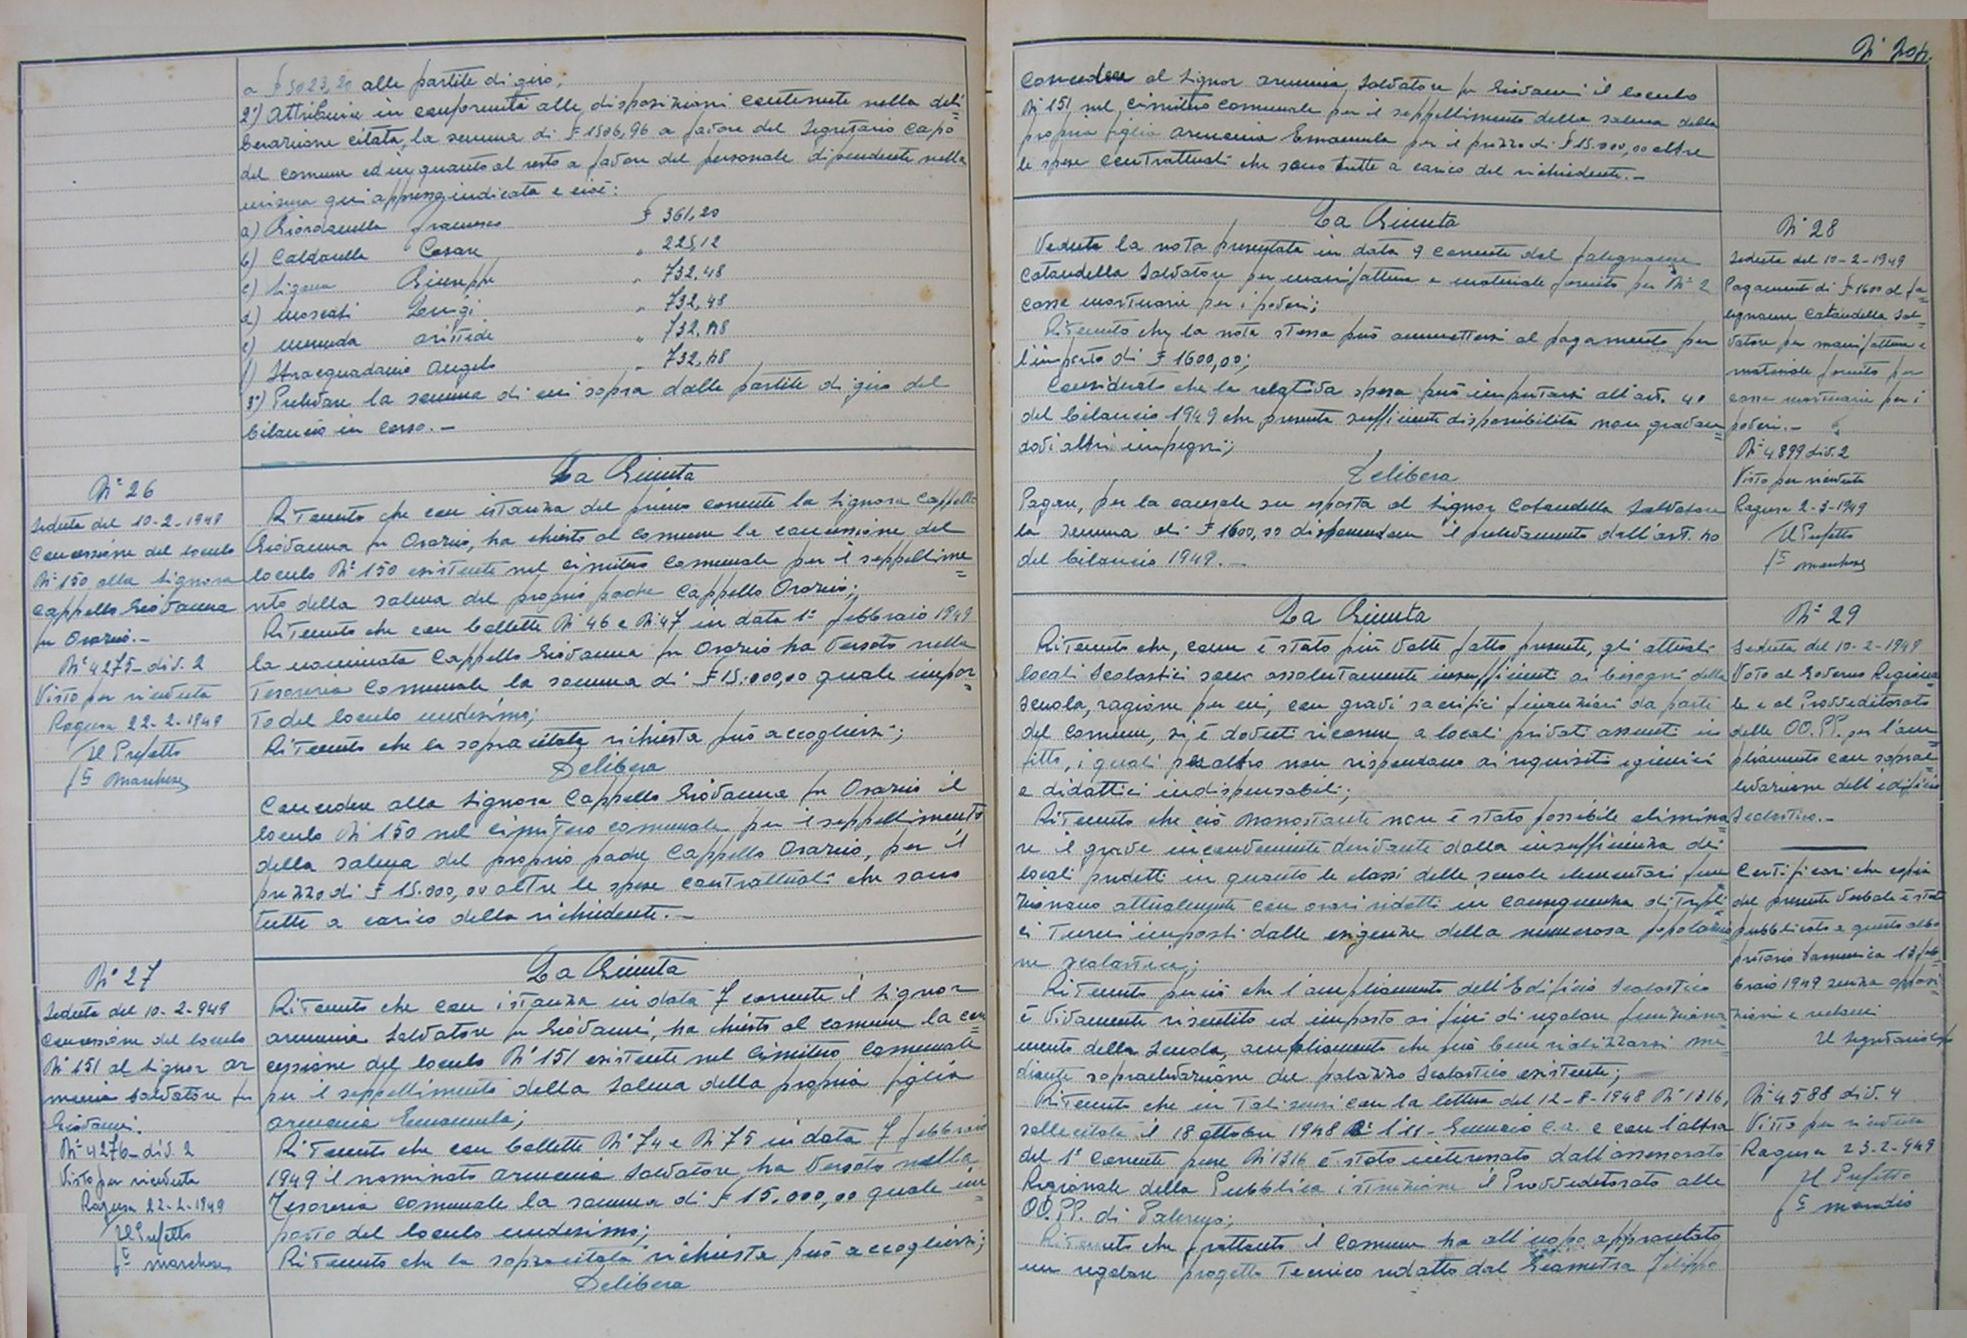 a £ 5023,20 alle partite di giro.
2°) Attribuire in conformità alle disposizioni contenute nella deli=
berazione citata, la somma di £ 1506,96 a favore del Segretario Capo
del comune ed in quanto al resto a favore del personale dipendente nella
misura qui appresso indicata e cioè:
a) Giordanella Francesco £ 361,20
b) Caldarella Cesare " 225,12
c) Ligama Giuseppe " 732,48
d) Moscati Luigi " 732,48
e) Aristide " 732,48
f) Stracquadanio Angelo " 732,48
3°) Prelevare la somma di cui sopra dalle partite di giro del
bilancio in corso.-
N° 26
Seduta del 10-2-1949
Concessione del loculo
N° 150 alla Signora
Cappello Giovanna
fu Orazio.-
N° 4275 div. 2
Visto per ricevuta
Ragusa 22-2-1949
Il Prefetto
f° Marchese
La Giunta
Ritenuto che con istanza del primo corrente la Signora Cappello
Giovanna fu Orazio, ha chiesto al comune la concessione del
loculo N° 150 esistente nel cimitero comunale per il seppellime=
nto della salma del proprio padre Cappello Orazio;
Ritenuto che con bollette N° 46 e N° 47 in data 1° febbraio 1949
la nominata Cappello Giovanna fu Orazio ha versato nella
Tesoreria Comunale la somma di £ 15.000,00 quale impor=
to del loculo medesimo;
Ritenuto che la sopracitata richiesta può accogliersi;
Delibera
Concedere alla Signora Cappello Giovanna fu Orazio il
loculo N° 150 nel cimitero comunale per il seppellimento
della salma del proprio padre Cappello Orazio, per il
prezzo di £ 15.000,00 oltre le spese contrattuali che sono
tutte a carico della richiedente.-
N° 27
Seduta del 10-2-949
Concessione del loculo
N° 151 al Signor Ar
menia Salvatore fu
Giovanni.
N° 4276 div. 2
Visto per ricevuta
Ragusa 22-2-1949
Il Prefetto
f° Marchese
La Giunta
Ritenuto che con istanza in data 7 corrente il Signor
Armenia Salvatore fu Giovanni, ha chiesto al comune la con
cessione del loculo N° 151 esistente nel Cimitero Comunale
per il seppellimento della salma della propria figlia
Armenia Emanuela;
Ritenuto che con bollette N° 74 e N° 75 in data 7 febbraio
1949 il nominato Armenia Salvatore ha versato nella
Tesoreria comunale la somma di £ 15.000,00 quale im=
porto del loculo medesimo;
Ritenuto che la sopracitata richiesta può accogliersi;
Delibera
N° 204.
Concedere al Signor Armenia Salvatore fu Giovanni il loculo
N° 151 nel cimitero comunale per il seppellimento della salma della
propria figlia Armenia Emanuela per il prezzo di £ 15.000,00 oltre
le spese contrattuali che sono tutte a carico del richiedente.-
La Giunta
Veduta la nota presentata in data 9 corrente dal falegname
Cataudella Salvatore per manifattura e materiale fornito per N° 2
casse mortuarie per i poveri;
Ritenuto che la nota stessa può ammettersi al pagamento per
l'importo di £ 1600,00;
Considerato che la relativa spesa può imputarsi all'art. 40
del bilancio 1949 che presenta sufficiente disponibilità non gravan=
dovi altri impegni;
Delibera
Pagare, per la causale su esposta al Signor Cataudella Salvatore
la somma di £ 1600,00 disponendone il prelevamento dall'art. 40
del bilancio 1949.-
N° 28
Seduta del 10-2-1949
Pagamento di £ 1600 al fa=
legname Cataudella Sal=
vatore per manifattura e
materiale fornito per
casse mortuarie per i
poveri.-
N° 4899 div. 2
Visto per ricevuta
Ragusa 2-3-1949
Il Prefetto
f° Marchese
La Giunta
Ritenuto che, come è stato più volte fatto presente, gli attuali
locali scolastici sono assolutamente insufficienti ai bisogni della
scuola, ragione per cui, con gravi sacrifici finanziari da parte
del comune, si è dovuti ricorrere a locali privati assunti in
fitto, i quali peraltro non rispondono ai requisiti igienici
e didattici indispensabili;
Ritenuto che ciò nonostante non è stato possibile elimina=
re il grave inconveniente derivante dalla insufficienza dei
locali predetti in quanto le classi delle scuole elementari fun=
zionano attualmente con orari ridotti in conseguenza di tripli=
ci turni imposti dalle esigenze della numerosa popolazio=
ne scolastica;
Ritenuto perciò che l'ampliamento dell'Edificio Scolastico
è vivamente risentito ed imposto ai fini di regolare funziona=
mento della scuola, ampliamento che può bene realizzarsi me=
diante sopraelevazione del palazzo scolastico esistente;
Ritenuto che in tali sensi con la lettera del 12-8-1948 N° 1816,
sollecitata il 18 ottobre 1948 e l'11 Gennaio c.a. e con l'altra
del 1° corrente pure N° 1316 è stato interessato dall'assessorato
Regionale della Pubblica istruzione il Provveditorato alle
OO.PP. di Palermo;
Ritenuto che frattanto il Comune ha all'uopo apprestato
un regolare progetto Tecnico redatto dal Geometra Filippo
N° 29
Seduta del 10-2-1949
Voto al Governo Regiona=
le e al Provveditorato
delle OO.PP. per l'am
pliamento con soprae=
levazione dell'edificio
scolastico.-
Certificasi che copia
del presente verbale è stata
pubblicata a questo albo
pretorio Domenica 13 feb=
braio 1949 senza opposi=
zioni e reclami
Il Segretario Capo
N° 4588 div. 4
Visto per ricevuta
Ragusa 23-2-949
Il Prefetto
f°